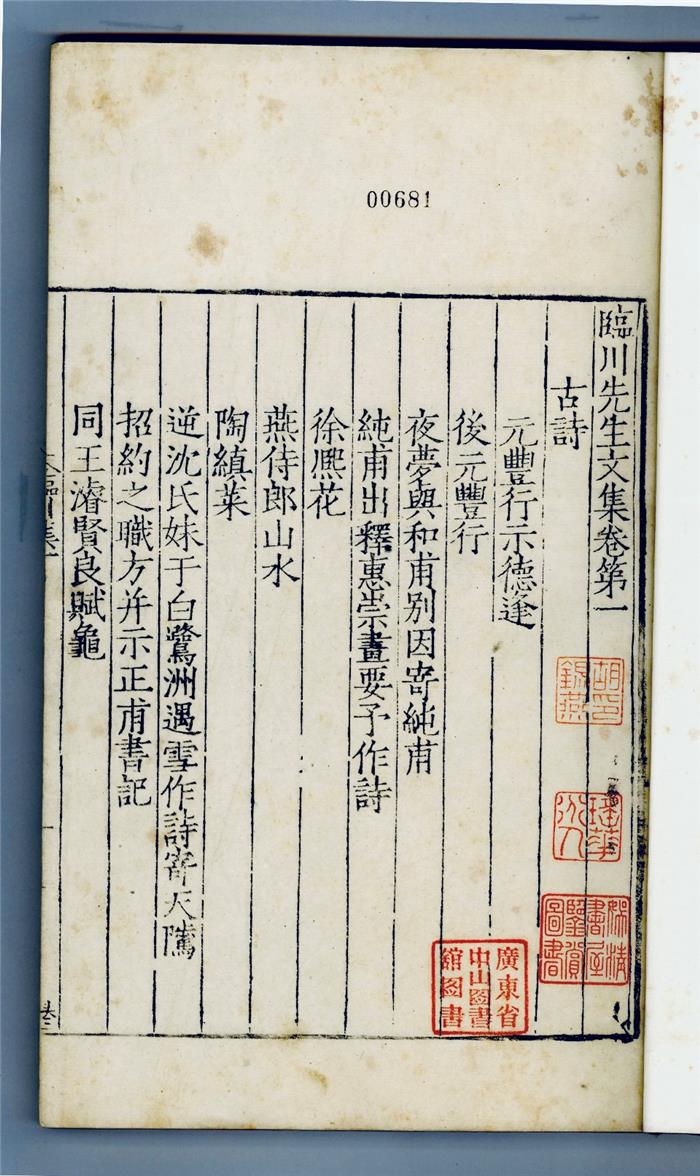 00681
臨川先生文集卷第一
古詩
元豐行示德逢
後元豐行
夜夢與和甫别因寄純甫
純甫出釋惠崇畫要予作詩
徐熈花
燕侍郎山水
陶縝菜
逆沈氏妹于白鷺洲遇雪作詩寄天隲
招約之職方并示正甫書記
同王濬賢良賦龜
胡印
錫燕
廣東省
中山圖書
舘圖書
鑒賞
圖書